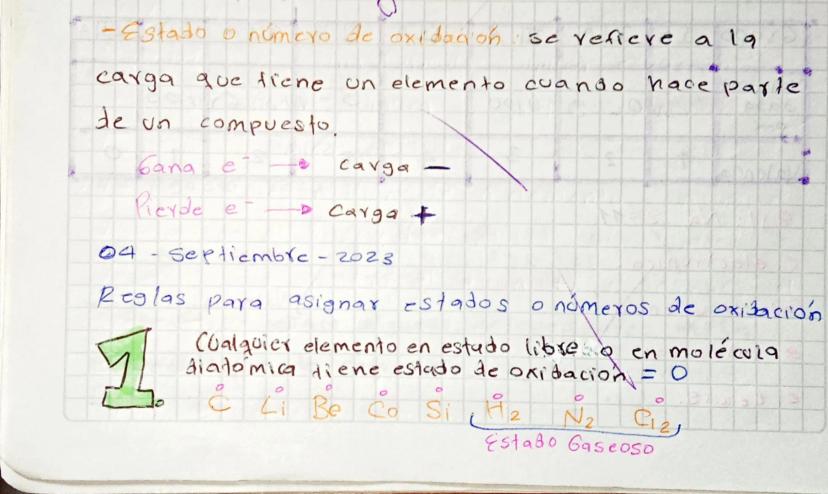 - Estado o número de oxidación: se refiere a la
carga que tiene un elemento cuando hace parte
de un compuesto.
Gana e⁻ → carga −
Pierde e⁻ → carga +
04 - Septiembre - 2023
Reglas para asignar estados o números de oxidación
1. Cualquier elemento en estado libre o en molécula
diatómica tiene estado de oxidación = 0
C⁰ Li⁰ Be⁰ Co⁰ Si⁰ H₂⁰ N₂⁰ Cl₂⁰
Estado Gaseoso